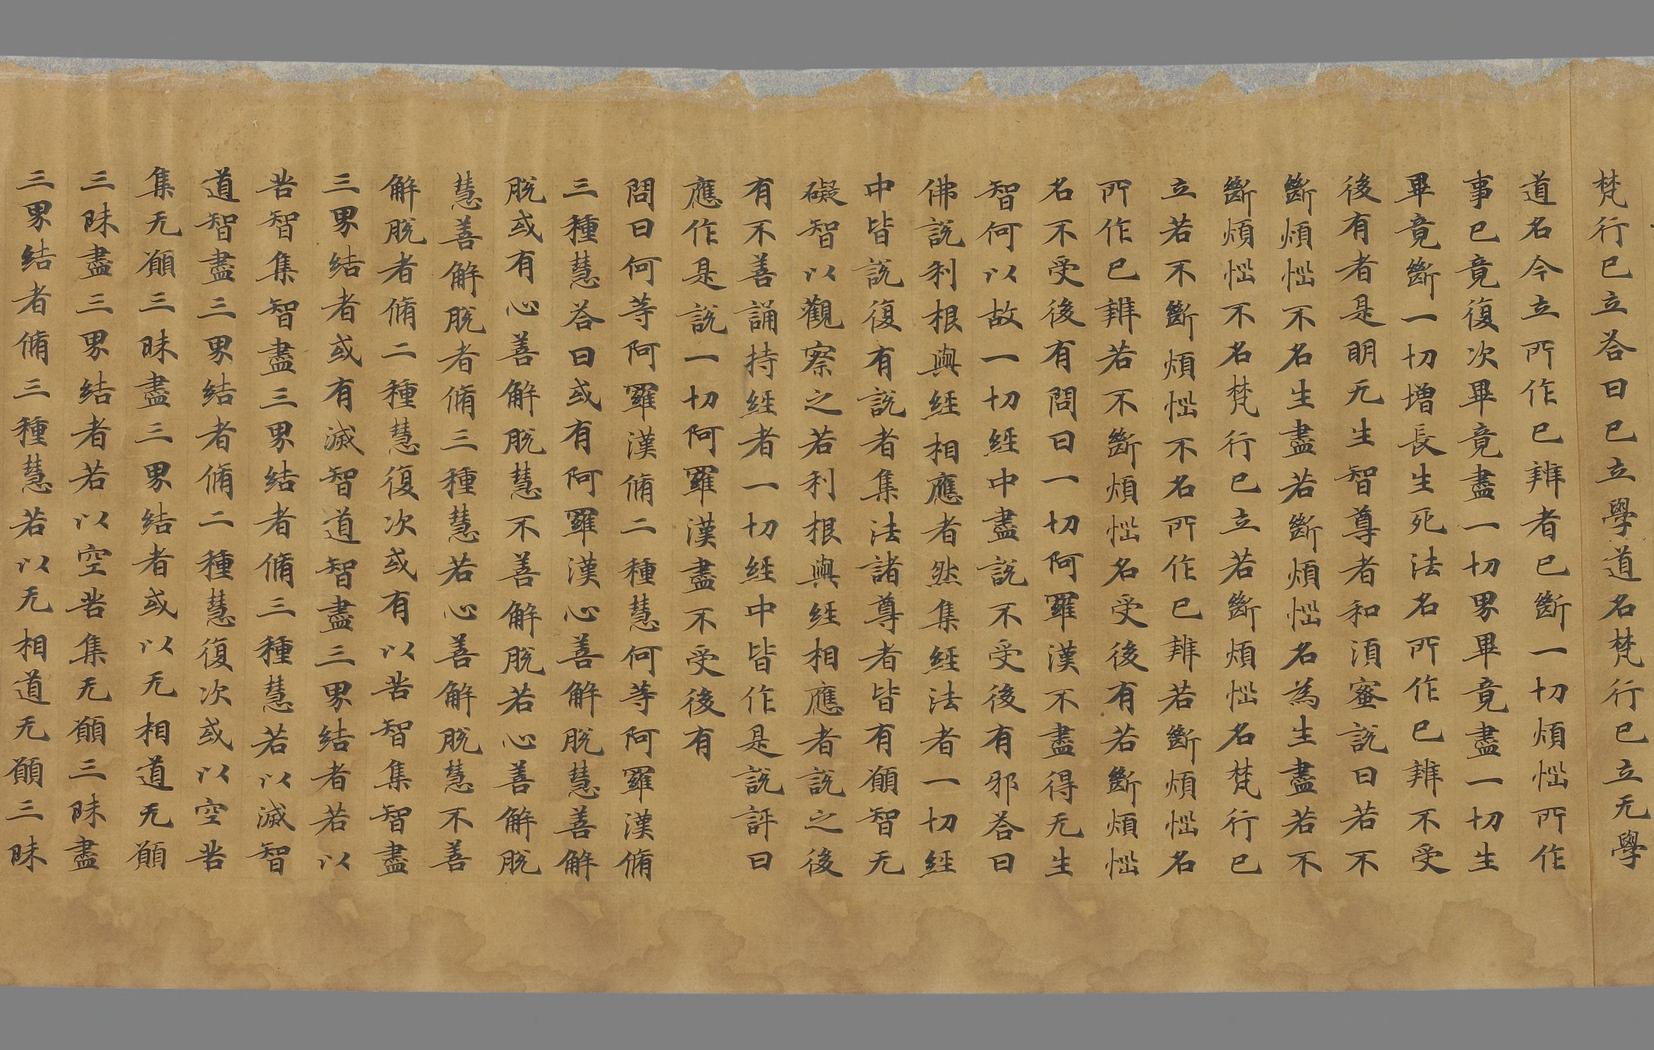 梵行已立荅曰已立學道名梵行已立无學
道名今立所作已辨者已斷一切煩惱所作
事已竟復次畢竟盡一切界畢竟盡一切生
畢竟斷一切增長生死法名所作已辨不受
後有者是明无生智尊者和須蜜說曰若不
斷煩惱不名生盡若斷煩惱名為生盡若不
斷煩惱不名梵行已立若斷煩惱名梵行已
立若不斷煩惱不名所作已辨若斷煩惱名
所作已辨若不斷煩惱名受後有若斷煩惱
名不受後有問曰一切阿羅漢不盡得无生
智何以故一切經中盡說不受後有邪荅曰
佛說利根與經相應者然集經法者一切經
中皆說復有說者集法諸尊者皆有願智无
礙智以觀察之若利根與經相應者說之後
有不善誦持經者一切經中皆作是說評曰
應作是說一切阿羅漢盡不受後有
問曰何等阿羅漢脩二種慧何等阿羅漢脩
三種慧荅曰或有阿羅漢心善解脫慧善解
脫或有心善解脫慧不善解脫若心善解脫
慧善解脫者脩三種慧若心善解脫慧不善
解脫者脩二種慧復次或有以苦智集智盡
三界結者或有滅智道智盡三界結者若以
苦智集智盡三界結者脩三種慧若以滅智
道智盡三界結者脩二種慧復次或以空苦
集无願三昧盡三界結者或以无相道无願
三昧盡三界結者若以空苦集无願三昧盡
三界結者脩三種慧若以无相道无願三昧